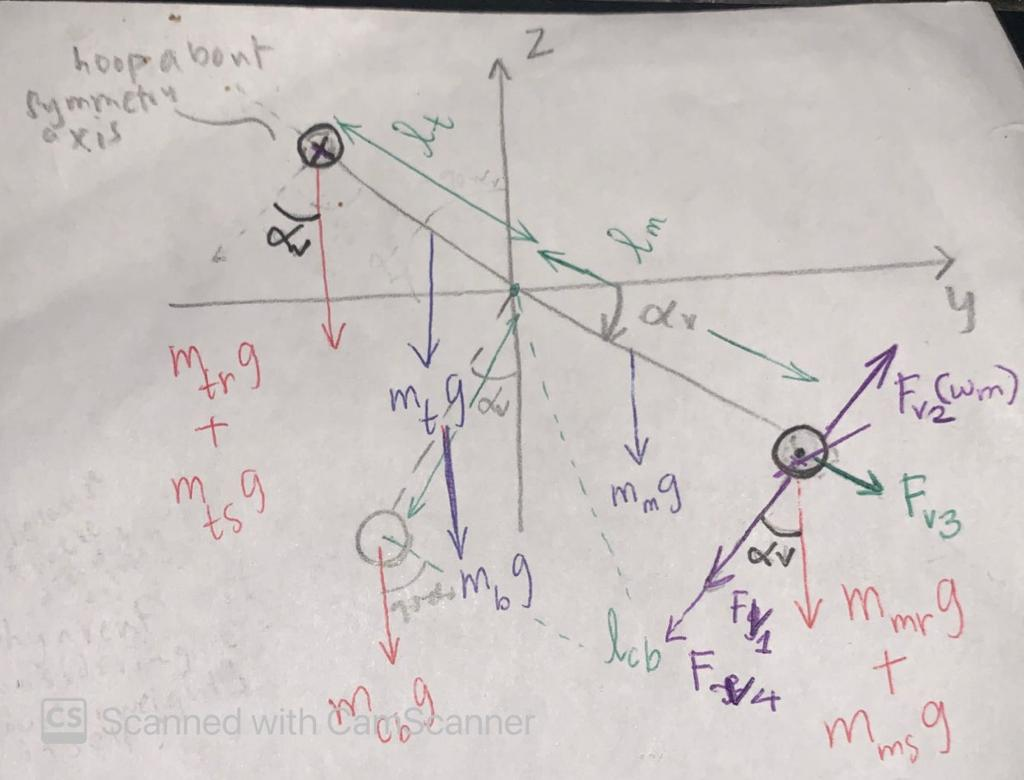 z
hoop about
symmetry
axis
l_t
l_m
y
α_v
α_v
m_tr g
+
m_ts g
m_t g
α_v
m_m g
F_v2(ω_m)
F_v3
α_v
m_b g
F_v1
m_mr g
+
m_ms g
l_cb
F_v4
m_cb g
CS Scanned with CamScanner